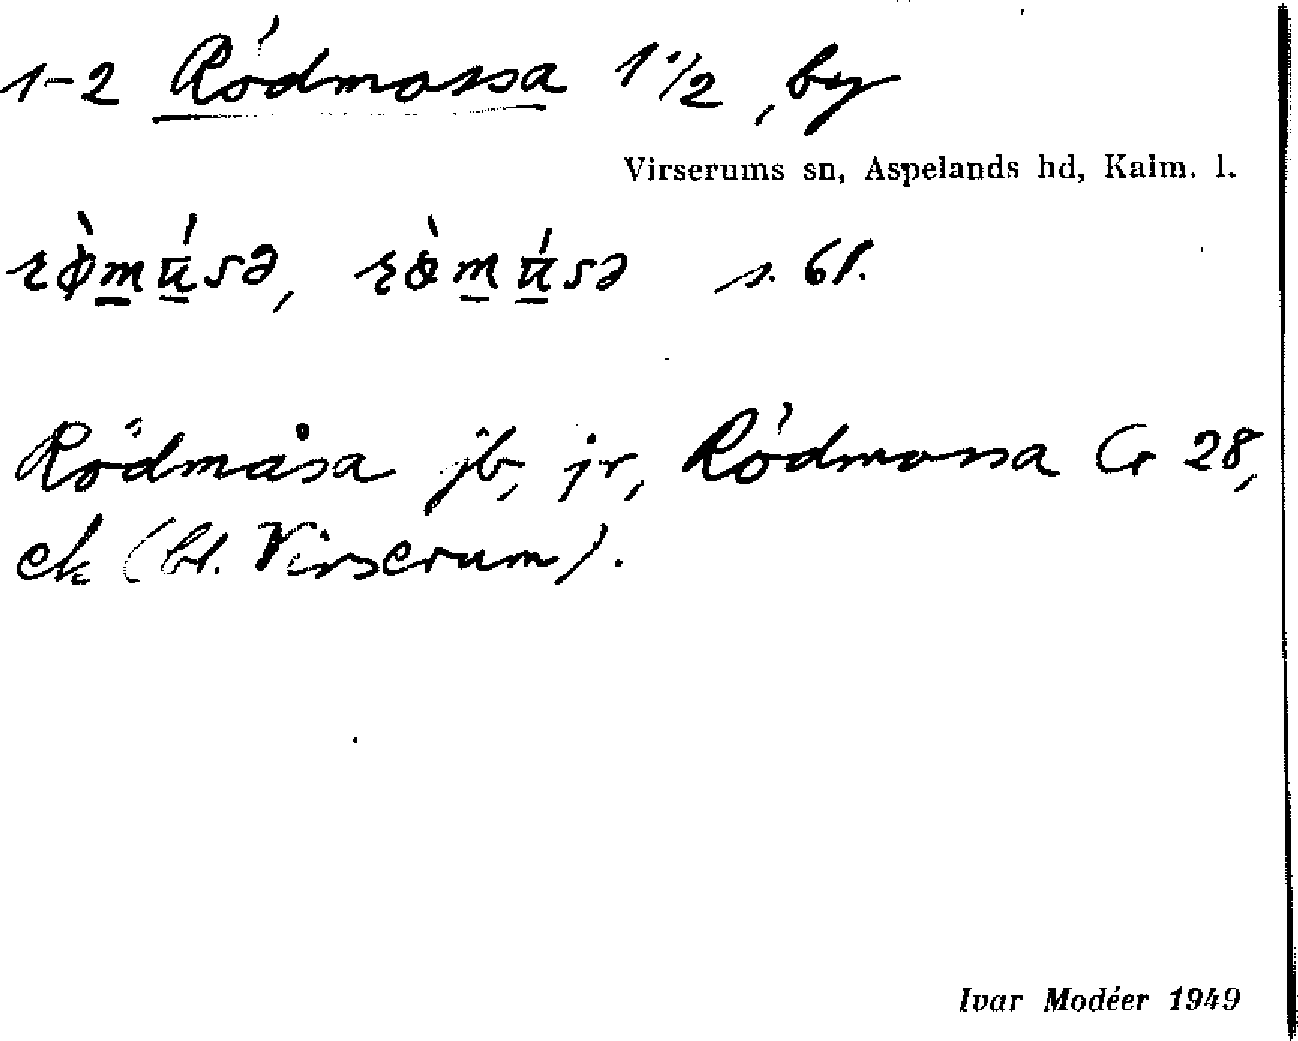 1-2 Rödmossa 1 1/2, by
Virserums sn, Aspelands hd, Kalm. l.
s. bl.
Rödmåsa jb, jr, Rödmossa Cr 28,
ek (bl. Virserum).
Ivar Modéer 1949